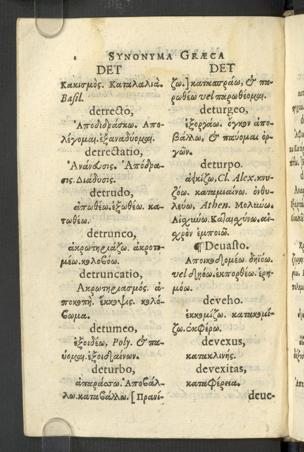 SYNONYMA GRÆCA
DET
Κακισμὸς. Καταλαλιὰ.
Basil.
detrecto,
Ἀποδιδράσκω. Ἀπο-
λέγομαι. ἐξαναδύομαι.
detrectatio,
Ἀνάνευσις. Ἀπόδρα-
σις. Διάδυσις.
detrudo,
ἀπωθέω. ἐξωθέω. κα-
τωθέω.
detrunco,
ἀκρωτηριάζω. ἀκροτο-
μέω. κολοβόω.
detruncatio,
Ἀκρωτηριασμὸς. ἀ-
ποκοπὴ. ἔκκοψις. κολό-
βωμα.
detumeo,
ἐξοιδέω, Poly. & πα-
ύομαι ἐξοιδαίνων.
deturbo,
ἀπαράσσω. Ἀποβάλ-
λω. καταβάλλω. [ Πρανί-
DET
ζω. ] κατασπράω, & πε-
vel
deturgeo,
ἐξοργάω. ὄγκον ἀπο-
βάλλω, & παύομαι ὀρ-
γῶν.
deturpo.
αἰκίζω, Cl. Alex.
ζω. καταμιαίνω.
λεύω, Athen. Μολύνω.
Αἰσχύνω. Καταισχύνω. αἶ-
σχρὸν ἐμποιῶ.
¶ Deuasto.
Ἀποικοδομέω. δηϊόω.
vel δῃόω. ἐκπορθέω. ἐρη-
μόω.
deveho.
ἐκκομίζω. κατακομί-
ζω. ἐκφέρω.
devexus,
κατακλινὴς.
devexitas,
καταφέρεια.
deue-